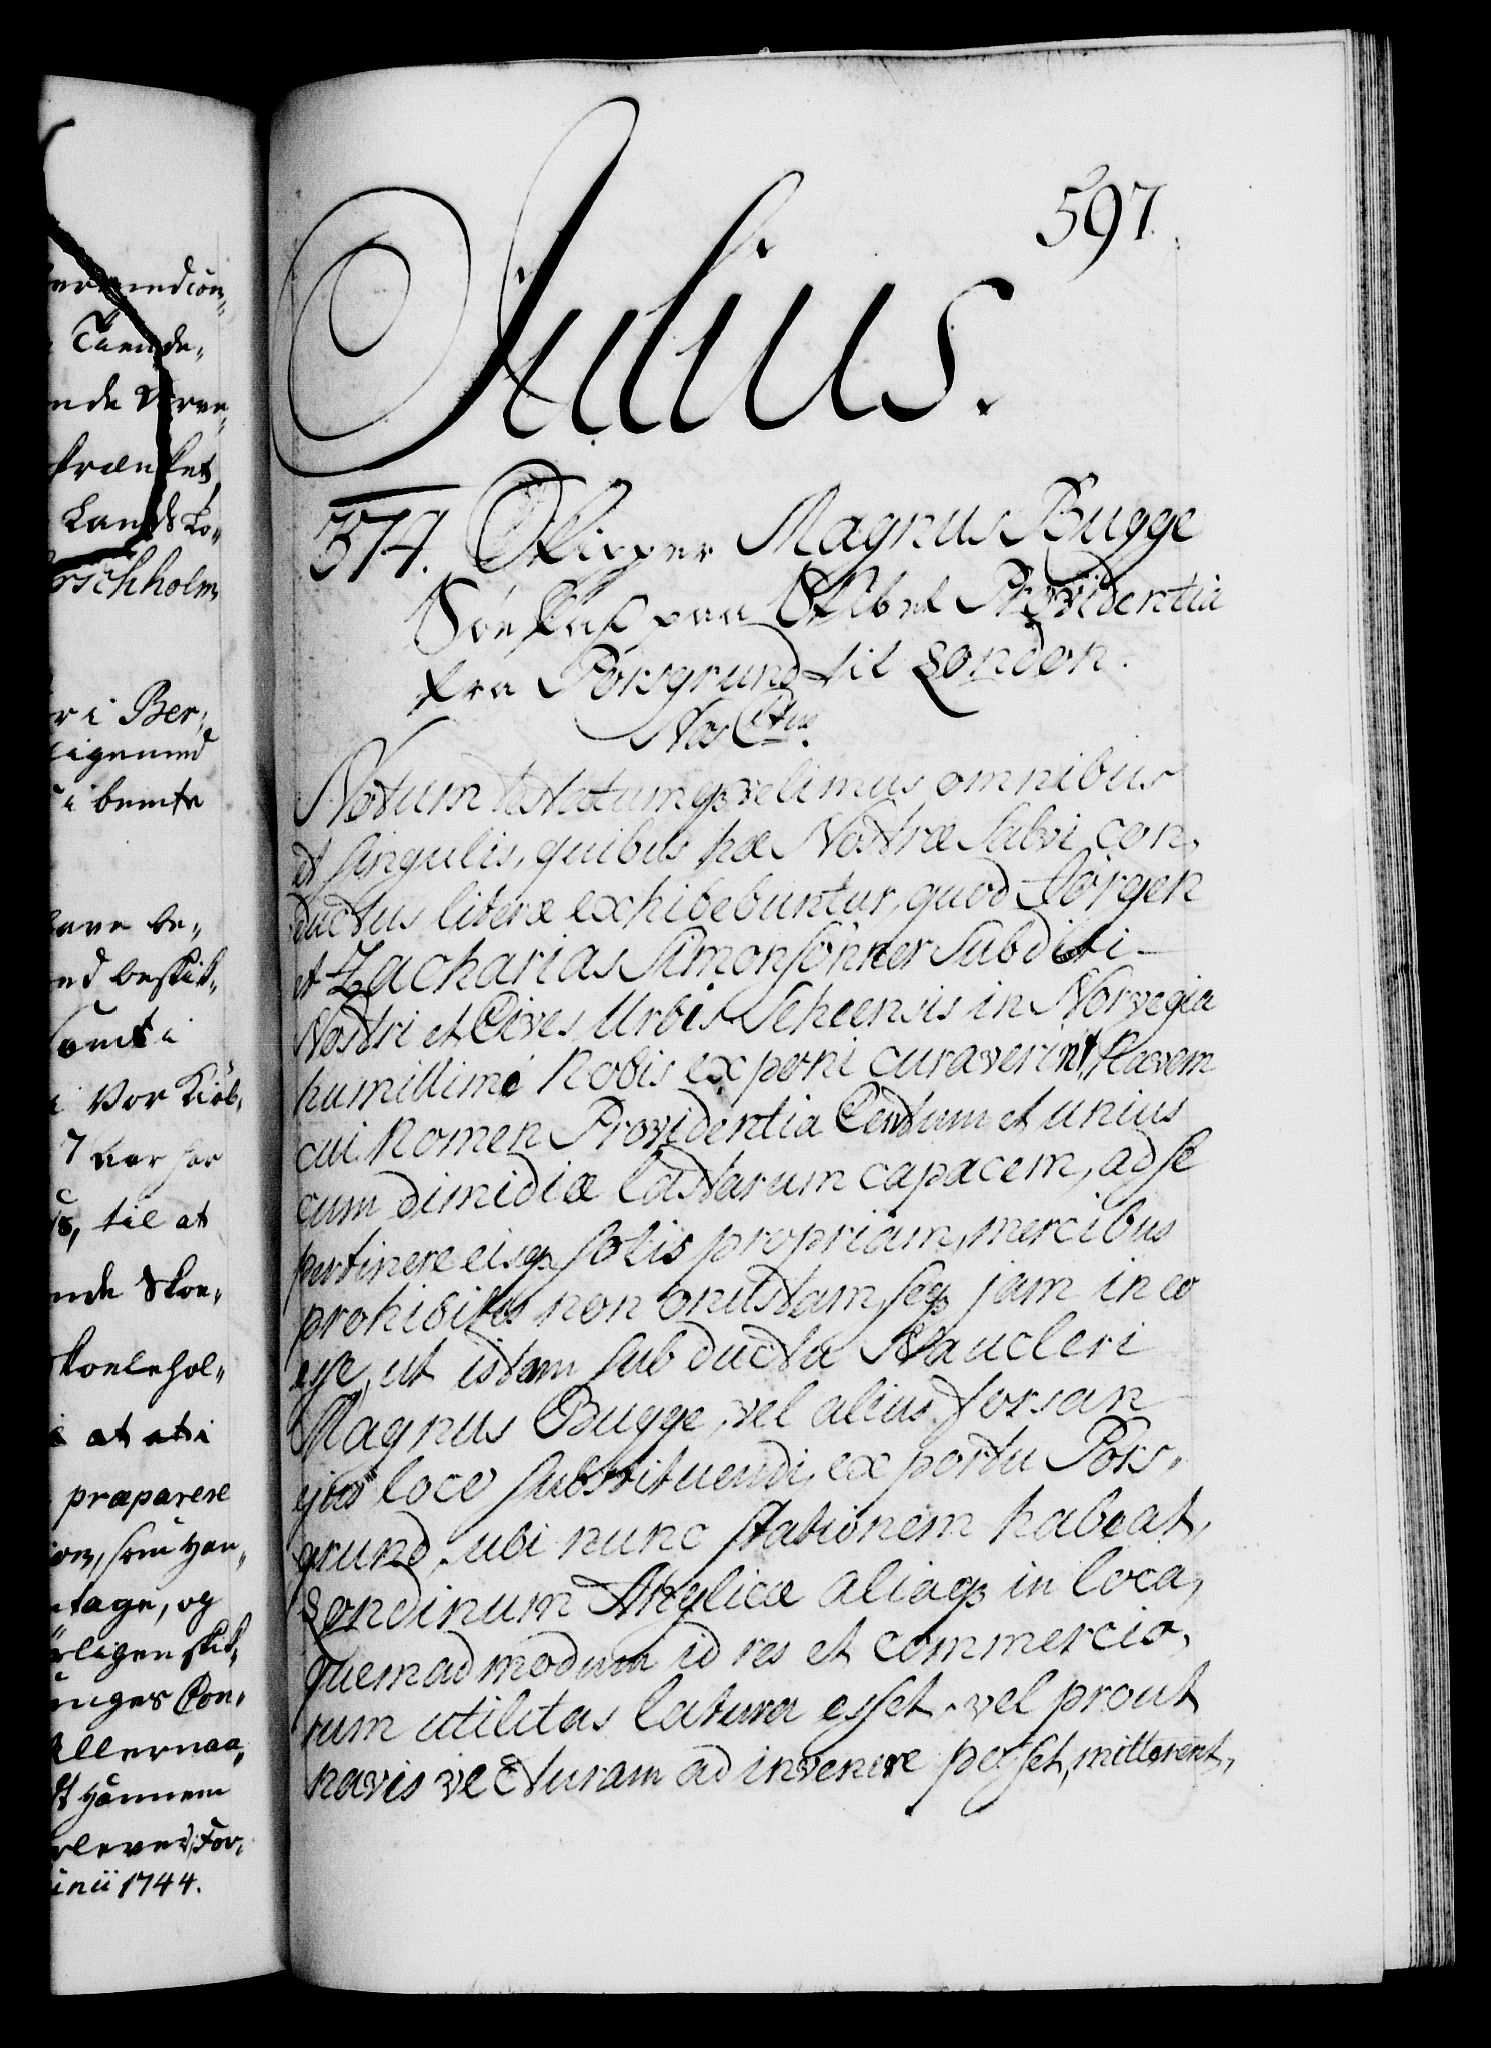 597.
Julius.
574. Skipper Magnus Bugge
Söe Pass paa Skibet Providentia
fra Porsgrund til London.
Nos Ctus.
Notum testatumq; velimus omnibus
et singulis, quibus hæ Nostræ Salvi con-
ductus literæ exhibebuntur, quod Jörgen
et Zacharias Simonsönner Subditi
Nostri et Cives Urbis Scheensis in Norvegia
humillime Nobis exponi curaverint, Navem
cui Nomen Providentia Centum et unius
cum dimidiæ lastarum capacem, ad se
pertinere eisq; solis propriam, mercibus
prohibitis non onustam, seq; jam in eo
esse, ut istam sub ductu Naucleri
Magnus Bugge, vel alius forsan
ejus loco substituendi, ex portu Pors-
grund, ubi nunc stationem habeat,
Londinum Angliæ aliaq; in loca,
quemadmodum id res et commercio-
rum utilitas latura esset, vel prout
navis vecturam ad invenire posset, mitterent,
er i Ber-
i bemte
have be-
i Vor Kiöb-
7 Aar har
til at
ende Skoe-
Skolehol-
at at i
præparere
som, som Han
antage, og
Con-
Allernaa-
Hannem
For-
Junii 1744.